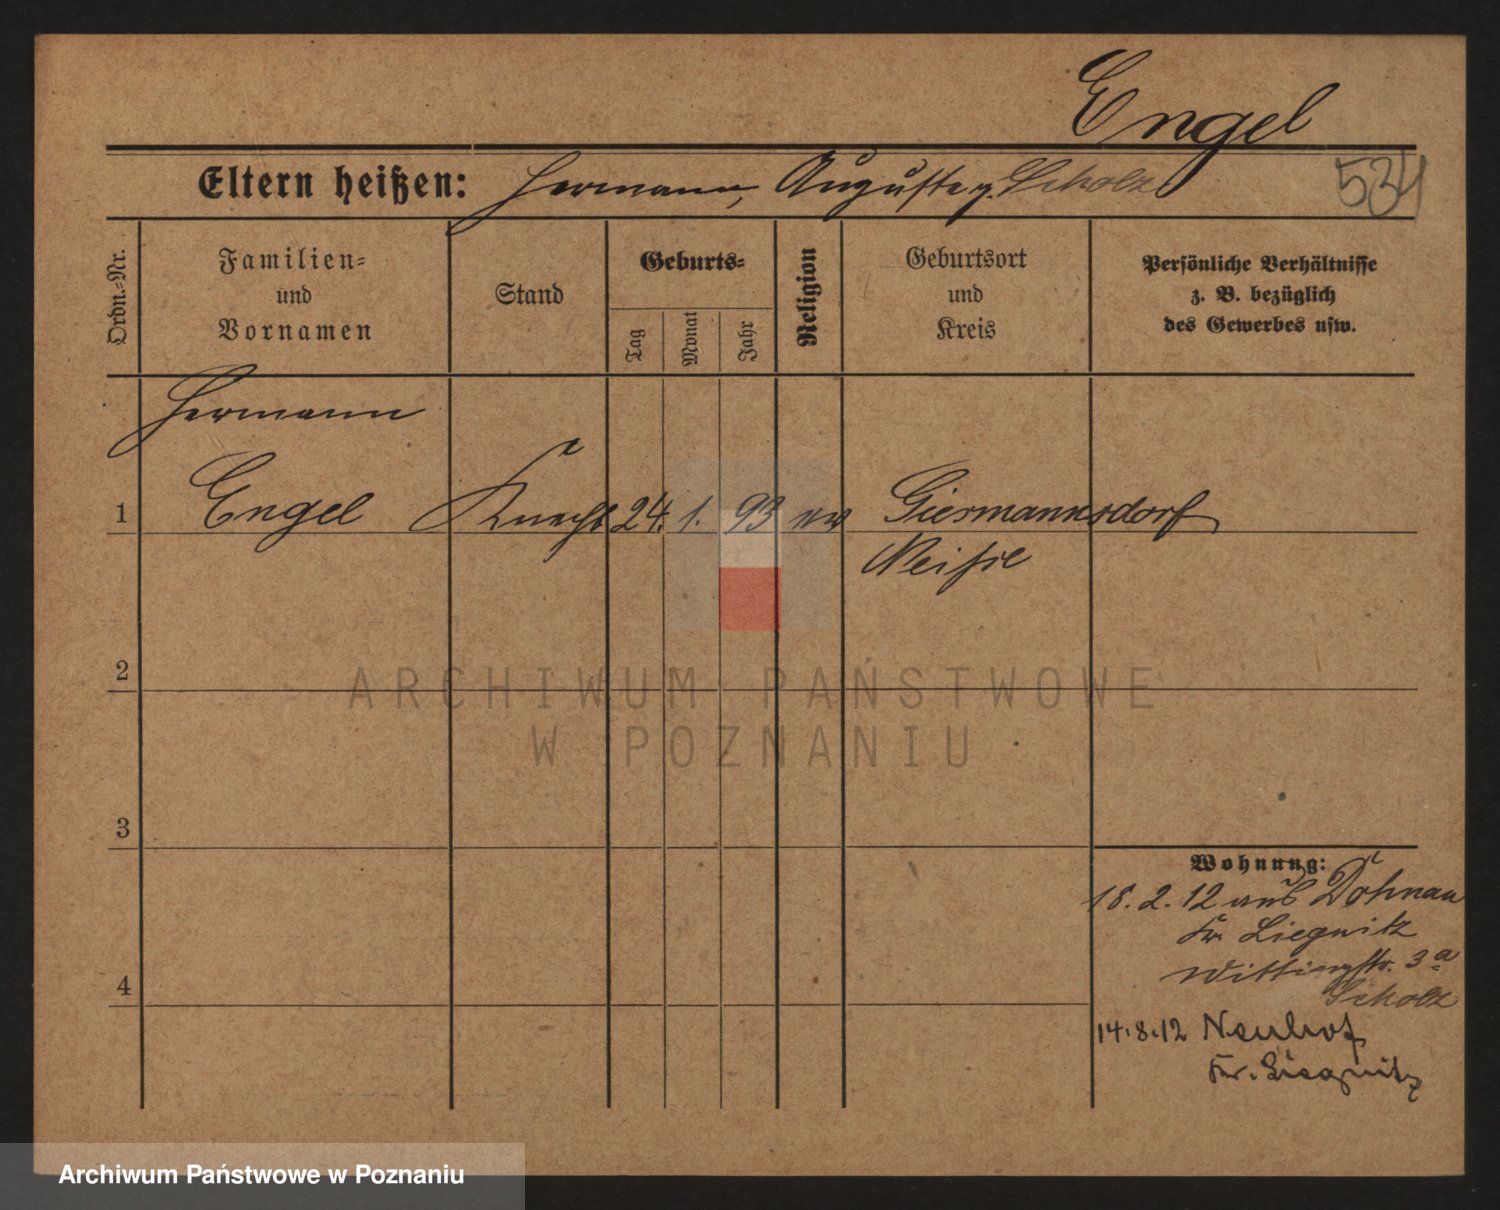 Engel
Eltern heißen: Hermann, Auguste g. Scholz
534
Ordn.-Nr.
Familien-
und
Vornamen
Stand
Geburts-
Tag
Monat
Jahr
Religion
Geburtsort
und
Kreis
Persönliche Verhältnisse
z. B. bezüglich
des Gewerbes usw.
Hermann
1 Engel Knecht 24. 1. 93 ev Giermannsdorf
Neiße
2
ARCHIWUM PAŃSTWOWE
W POZNANIU
3
Wohnung:
18. 2. 12 aus Dohnau
Kr. Liegnitz
Wittingstr. 3a
Scholz
4
14.8.12 Neuhof
Kr. Liegnitz
Archiwum Państwowe w Poznaniu